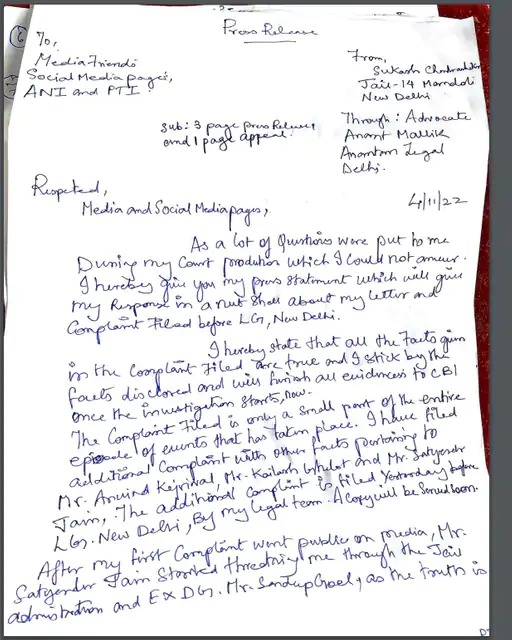 Press Release
To,
Media Friends
Social Media pages,
ANI and PTI
From,
Sukash Chandrashekar
Jail-14 Mandoli
New Delhi
Through: Advocate
Anant Mallik
Anantam Legal
Delhi.
Sub: 3 page press Release,
and 1 page appeal.
Respected,
4/11/22
Media and Social Media pages,
As a lot of Questions were put to me
During my Court production which I could not answer.
I hereby give you my press statement which will give
my Response in a nut shell about my letter and
Complaint Filed before LG, New Delhi.
I hereby state that all the Facts given
in the Complaint Filed are true and I stick by the
facts disclosed and will furnish all evidences to CBI
once the investigation starts, now.
The Complaint Filed is only a small part of the entire
episode of events that has taken place. I have filed
additional Complaint with other facts pertaining to
Mr. Arvind Kejriwal, Mr. Kailash Gehlot and Mr. Satyender
Jain, The additional Complaint is filed Yesterday before
LG. New Delhi, By my legal team. A Copy will be Served soon.
After my first Complaint went public on media, Mr.
Satyender Jain Started threatning me through the Jail
administration and Ex DG. Mr. Sandeep Goel, as the truth is